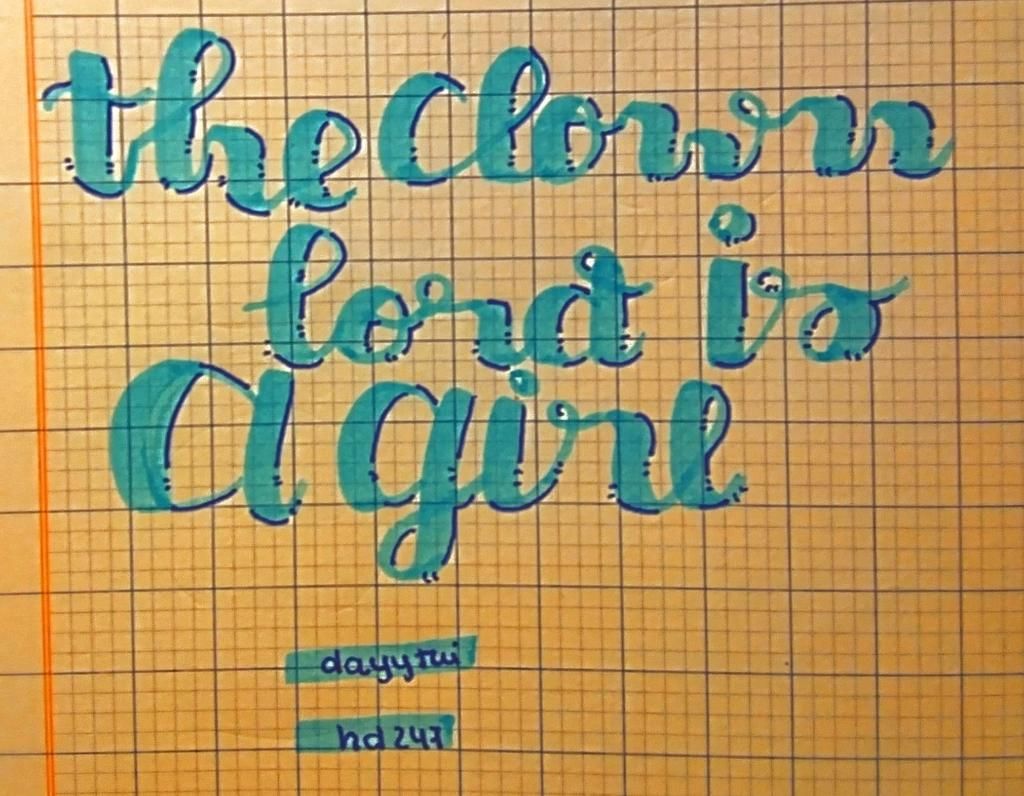 the Clown
lord is
A girl
dayytui
hd247